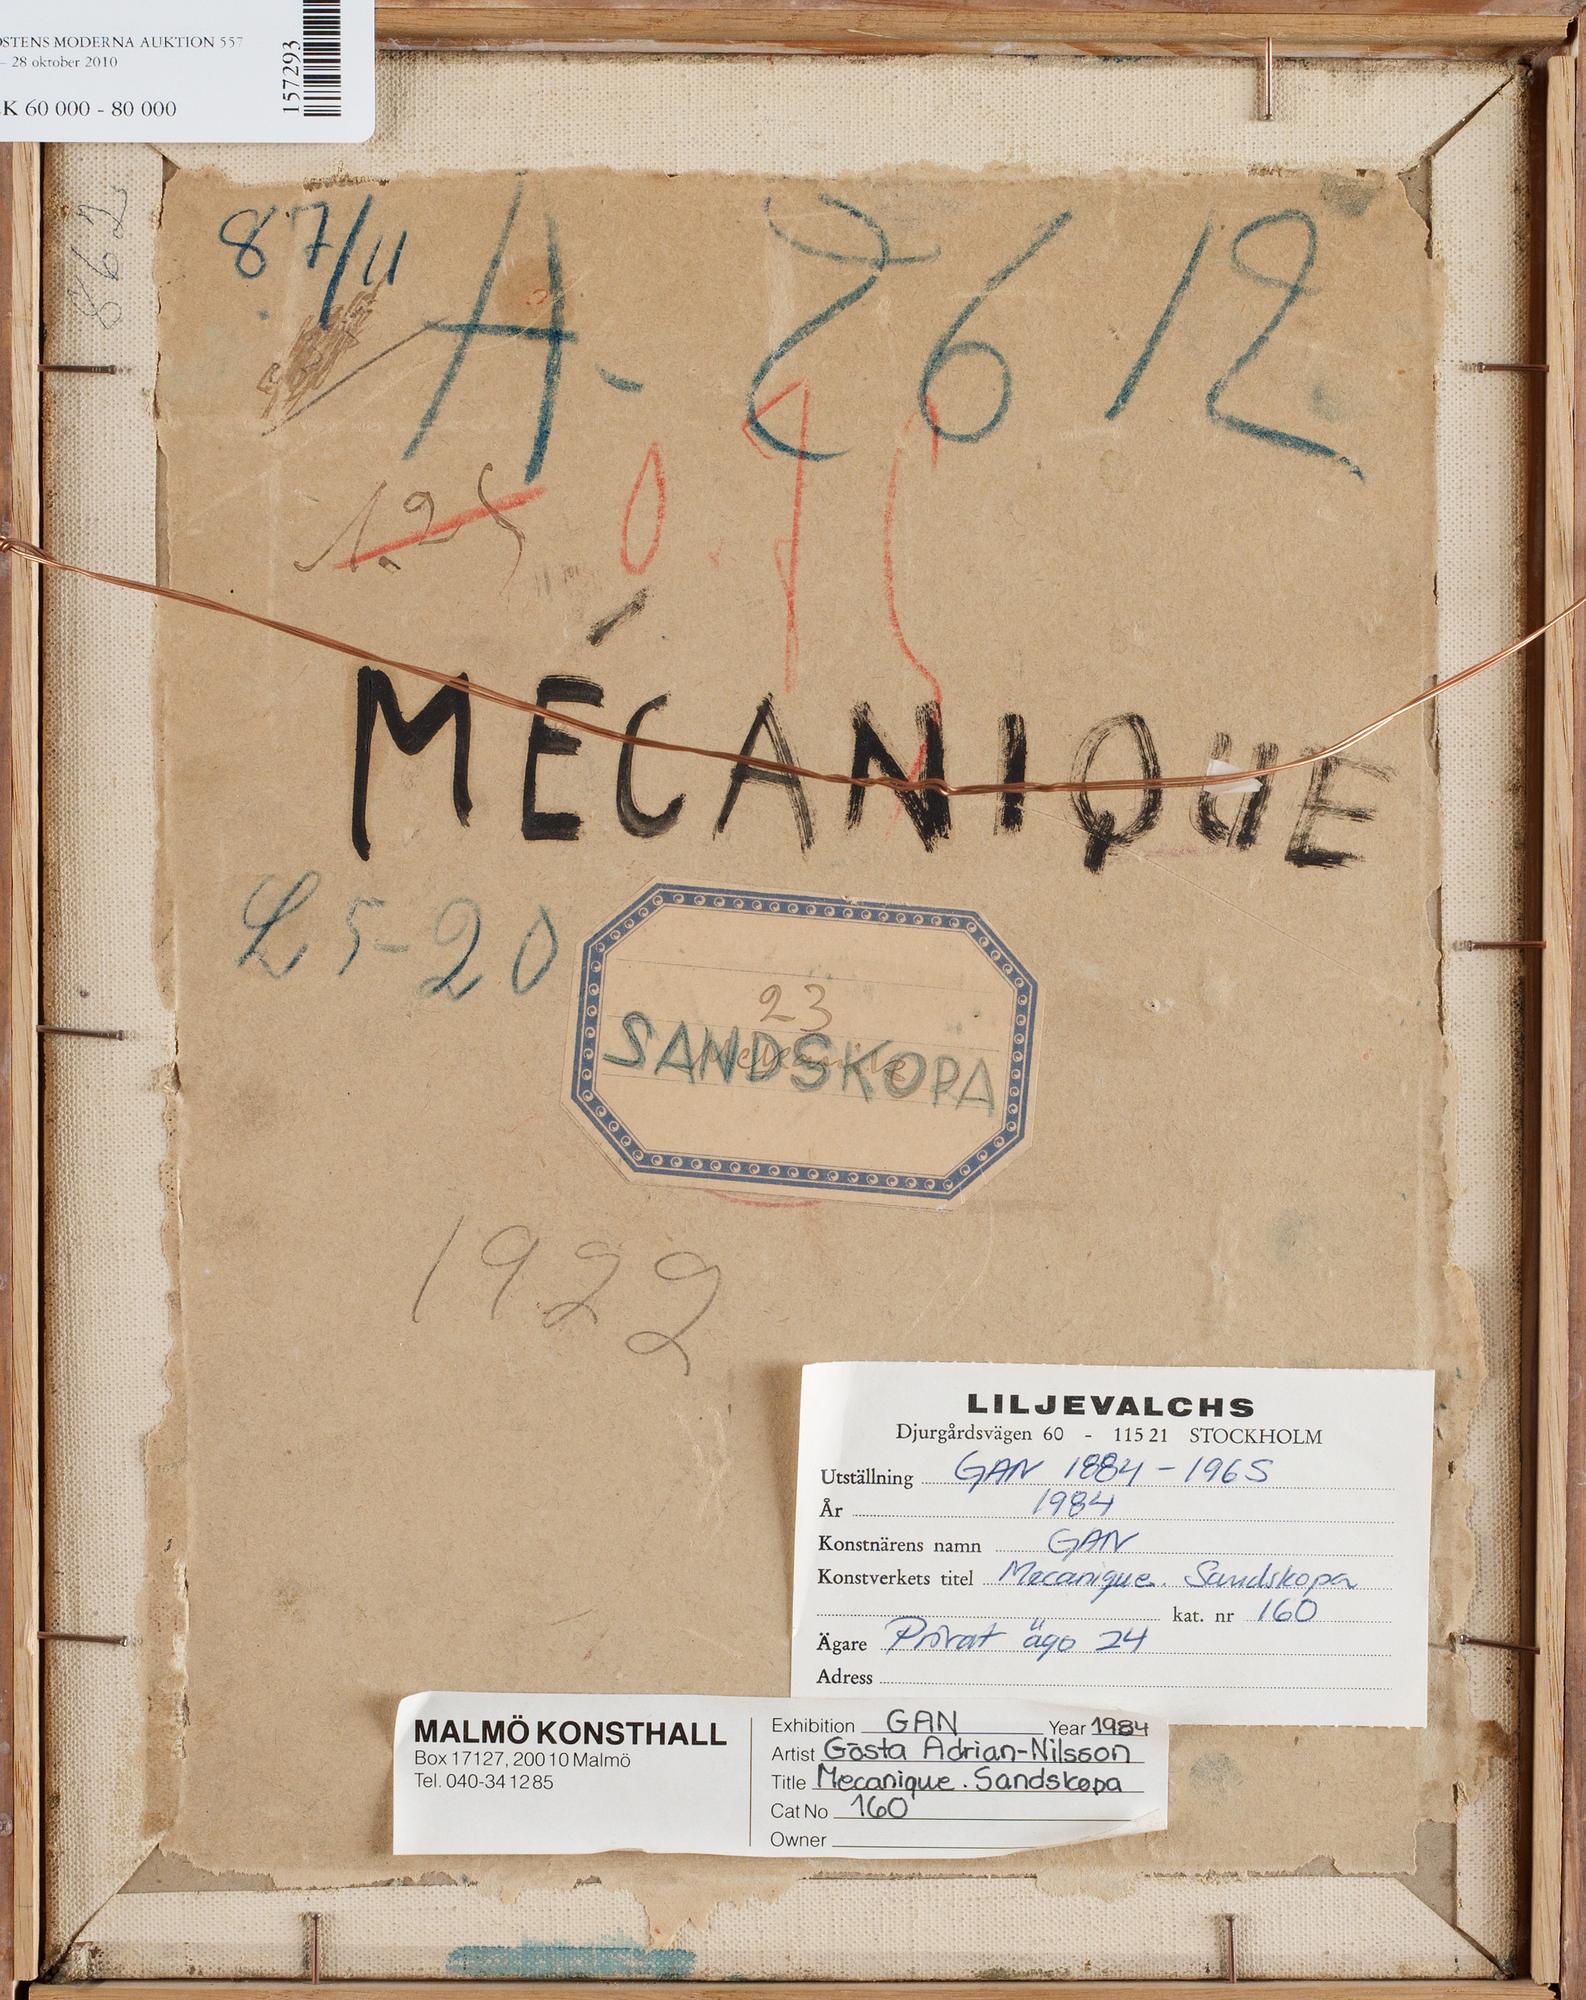 STENS MODERNA AUKTION 557
– 28 oktober 2010
K 60 000 - 80 000
157293
862
87/11
A- 2612
1.25
0.75
MÉCANIQUE
L5-20
23
SANDSKOPA
1922
LILJEVALCHS
Djurgårdsvägen 60 - 115 21 STOCKHOLM
Utställning GAN 1884-1965
År 1984
Konstnärens namn GAN
Konstverkets titel Mecanique. Sandskopa
kat. nr 160
Ägare Privat ägo 24
Adress
MALMÖ KONSTHALL
Box 17127, 200 10 Malmö
Tel. 040-34 12 85
Exhibition GAN Year 1984
Artist Gösta Adrian-Nilsson
Title Mecanique. Sandskopa
Cat No 160
Owner